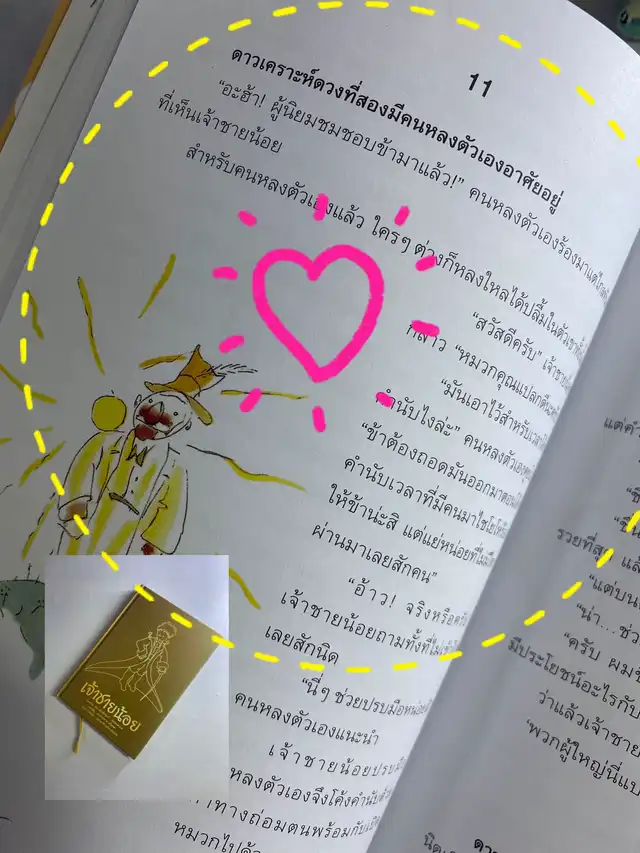 11
ดาวเคราะห์ดวงที่สองมีคนหลงตัวเองอาศัยอยู่
“อะฮ้า! ผู้นิยมชมชอบข้ามาแล้ว!” คนหลงตัวเองร้องมาแต่ไกล
ที่เห็นเจ้าชายน้อย
สำหรับคนหลงตัวเองแล้ว ใครๆ ต่างก็หลงใหลได้ปลื้มในตัวเขาทั้งนั้น
“สวัสดีครับ” เจ้าชาย
กล่าว “หมวกคุณแปลกดี
“มันเอาไว้สำหรับเวลา
คำนับไงล่ะ” คนหลงตัวเอง
“ข้าต้องถอดมันออกมา
คำนับเวลาที่มีคนมาไชโยโห่
ให้ข้าน่ะสิ แต่แย่หน่อยที่ไม่มี
ผ่านมาเลยสักคน”
“อ้าว! จริงหรือ
เจ้าชายน้อยถามทั้งที่ไม่เข้าใจ
เลยสักนิด
“นี่ๆ ช่วยปรบมือหน่อย
คนหลงตัวเองแนะนำ
เจ้าชายน้อยปรบมือ
หลงตัวเองจึงโค้งคำนับ
ทางถ่อมตนพร้อมกับ
หมวกไปด้วย
แต่คำ
“ชื่
“ชื่น
รวยที่สุด แล
“แต่บน
“น่า...ช่ว
“ครับ ผมช
มีประโยชน์อะไรกับ
ว่าแล้วเจ้าชาย
“พวกผู้ใหญ่นี่แป
เจ้าชายน้อย